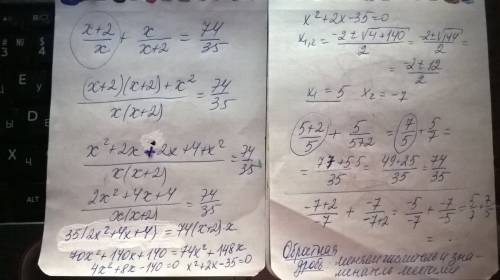 (x+2)/x + x/(x+2) = 74/35
((x+2)(x+2)+x²)/(x(x+2)) = 74/35
(x²+2x+2x+4+x²)/(x(x+2)) = 74/35
(2x²+4x+4)/(x(x+2)) = 74/35
35(2x²+4x+4) = 74(x+2)x
70x²+140x+140 = 74x²+148x
4x²+8x-140=0 x²+2x-35=0
x²+2x-35=0
x₁,₂ = (-2±√4+140)/2 = (-2±√144)/2 =
= (-2±12)/2
x₁ = 5 x₂ = -7
(5+2)/5 + 5/(5+2) = 7/5 + 5/7 =
= (7·7+5·5)/35 = (49+25)/35 = 74/35
(-7+2)/-7 + -7/(-7+2) = -5/-7 + -7/-5 = 5/7 + 7/5
Обратная
дробь